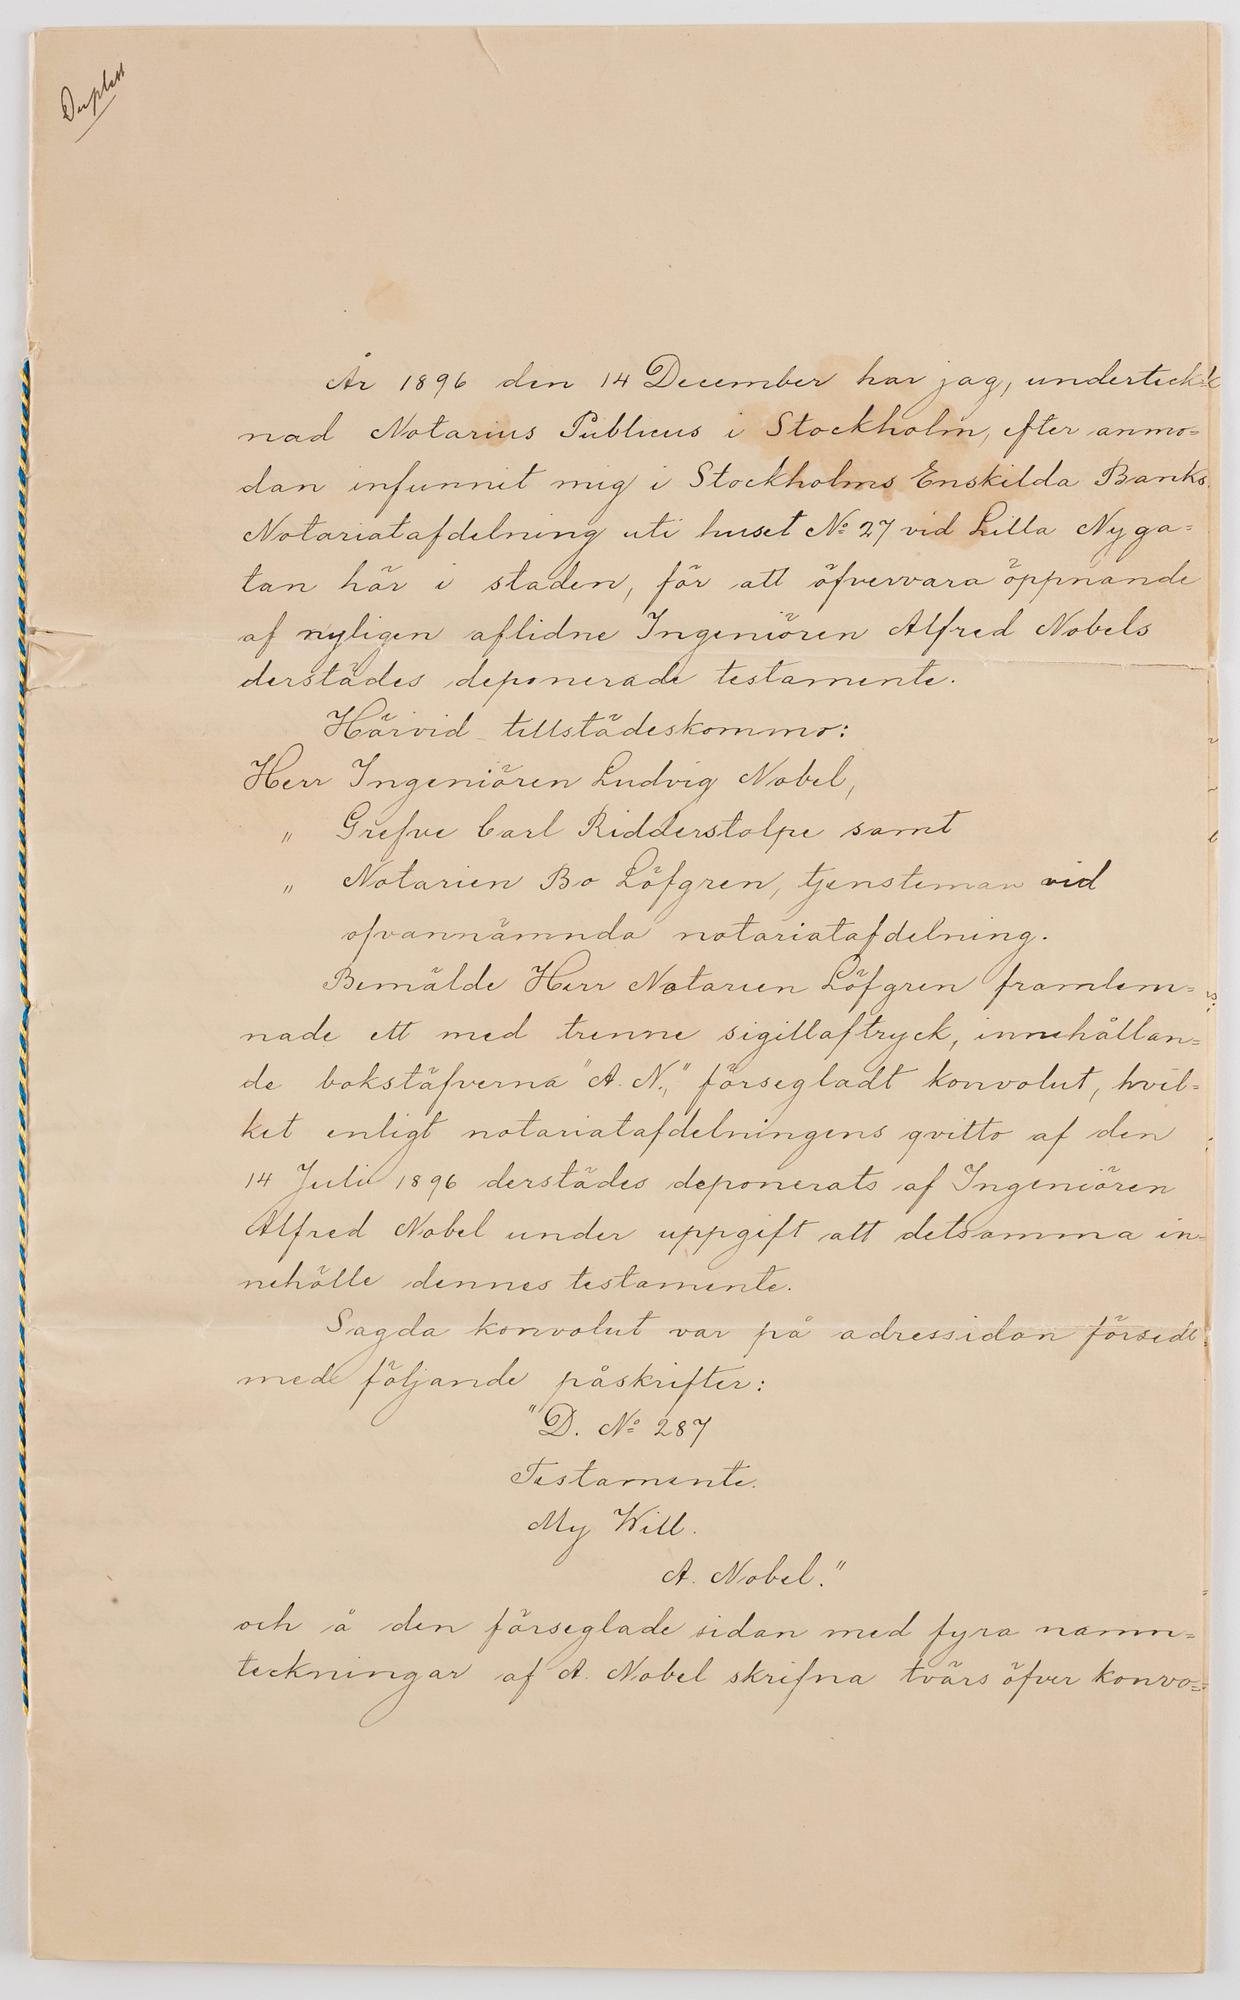 Duplett
År 1896 den 14 December har jag, underteck-
nad Notarius Publicus i Stockholm, efter anmo=
dan infunnit mig i Stockholms Enskilda Banks
Notariatafdelning uti huset No 27 vid Lilla Nyga=
tan här i staden, för att öfvervara öppnande
af nyligen aflidne Ingeniören Alfred Nobels
derstädes deponerade testamente.
Härvid tillstädeskommo:
Herr Ingeniören Ludvig Nobel,
" Grefve Carl Ridderstolpe samt
" Notarien Bo Löfgren, tjensteman vid
ofvannämnda notariatafdelning.
Bemälde Herr Notarien Löfgren framlem=
nade ett med trenne sigillaftryck, innehållan=
de bokstäfverna "A. N.," försegladt konvolut, hvil=
ket enligt notariatafdelningens qvitto af den
14 Juli 1896 derstädes deponerats af Ingeniören
Alfred Nobel under uppgift att detsamma in=
nehölle dennes testamente.
Sagda konvolut var på adressidan försedt
med följande påskrifter:
"D. No 287
Testamente.
My Will.
A. Nobel."
och å den förseglade sidan med fyra namn=
teckningar af A. Nobel skrifna tvärs öfver konvo=